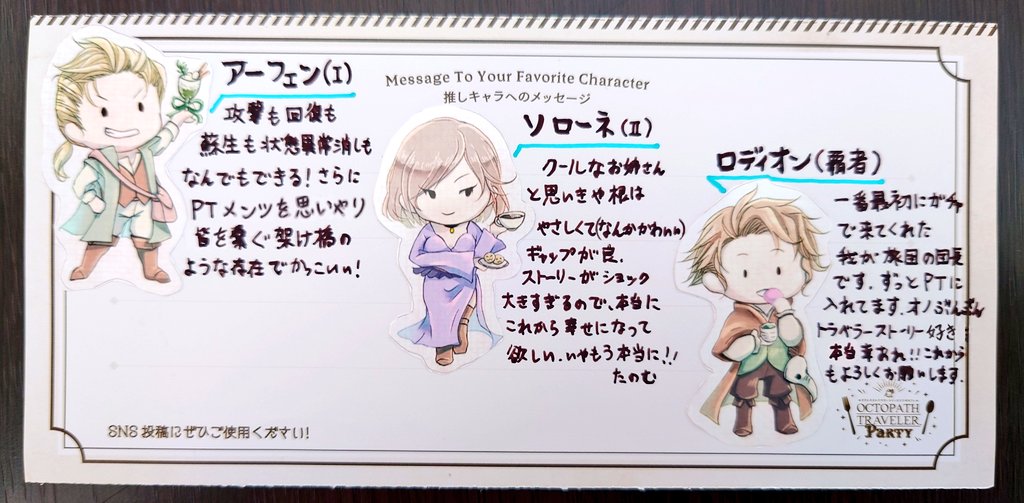 Message To Your Favorite Character
推しキャラへのメッセージ
アーフェン(I)
攻撃も回復も
蘇生も状態異常消しも
なんでもできる!さらに
PTメンツを思いやり
皆を繋ぐ架け橋の
ような存在でかっこいい!
ソローネ(II)
クールなお姉さん
と思いきや根は
やさしくて(なんかかわいい)
ギャップが良.
ストーリーがショック
大きすぎるので、本当に
これから幸せになって
欲しい.いやもう本当に!!
たのむ
ロディオン(覇者)
一番最初にガチャ
で来てくれた
我が旅団の団長
です.ずっとPTに
入れてます.オノぶんぶん
トラベラーストーリー好き!
本当幸あれ!!これから
もよろしくお願いします.
SNS投稿にぜひご使用ください!
OCTOPATH
TRAVELER
PARTY